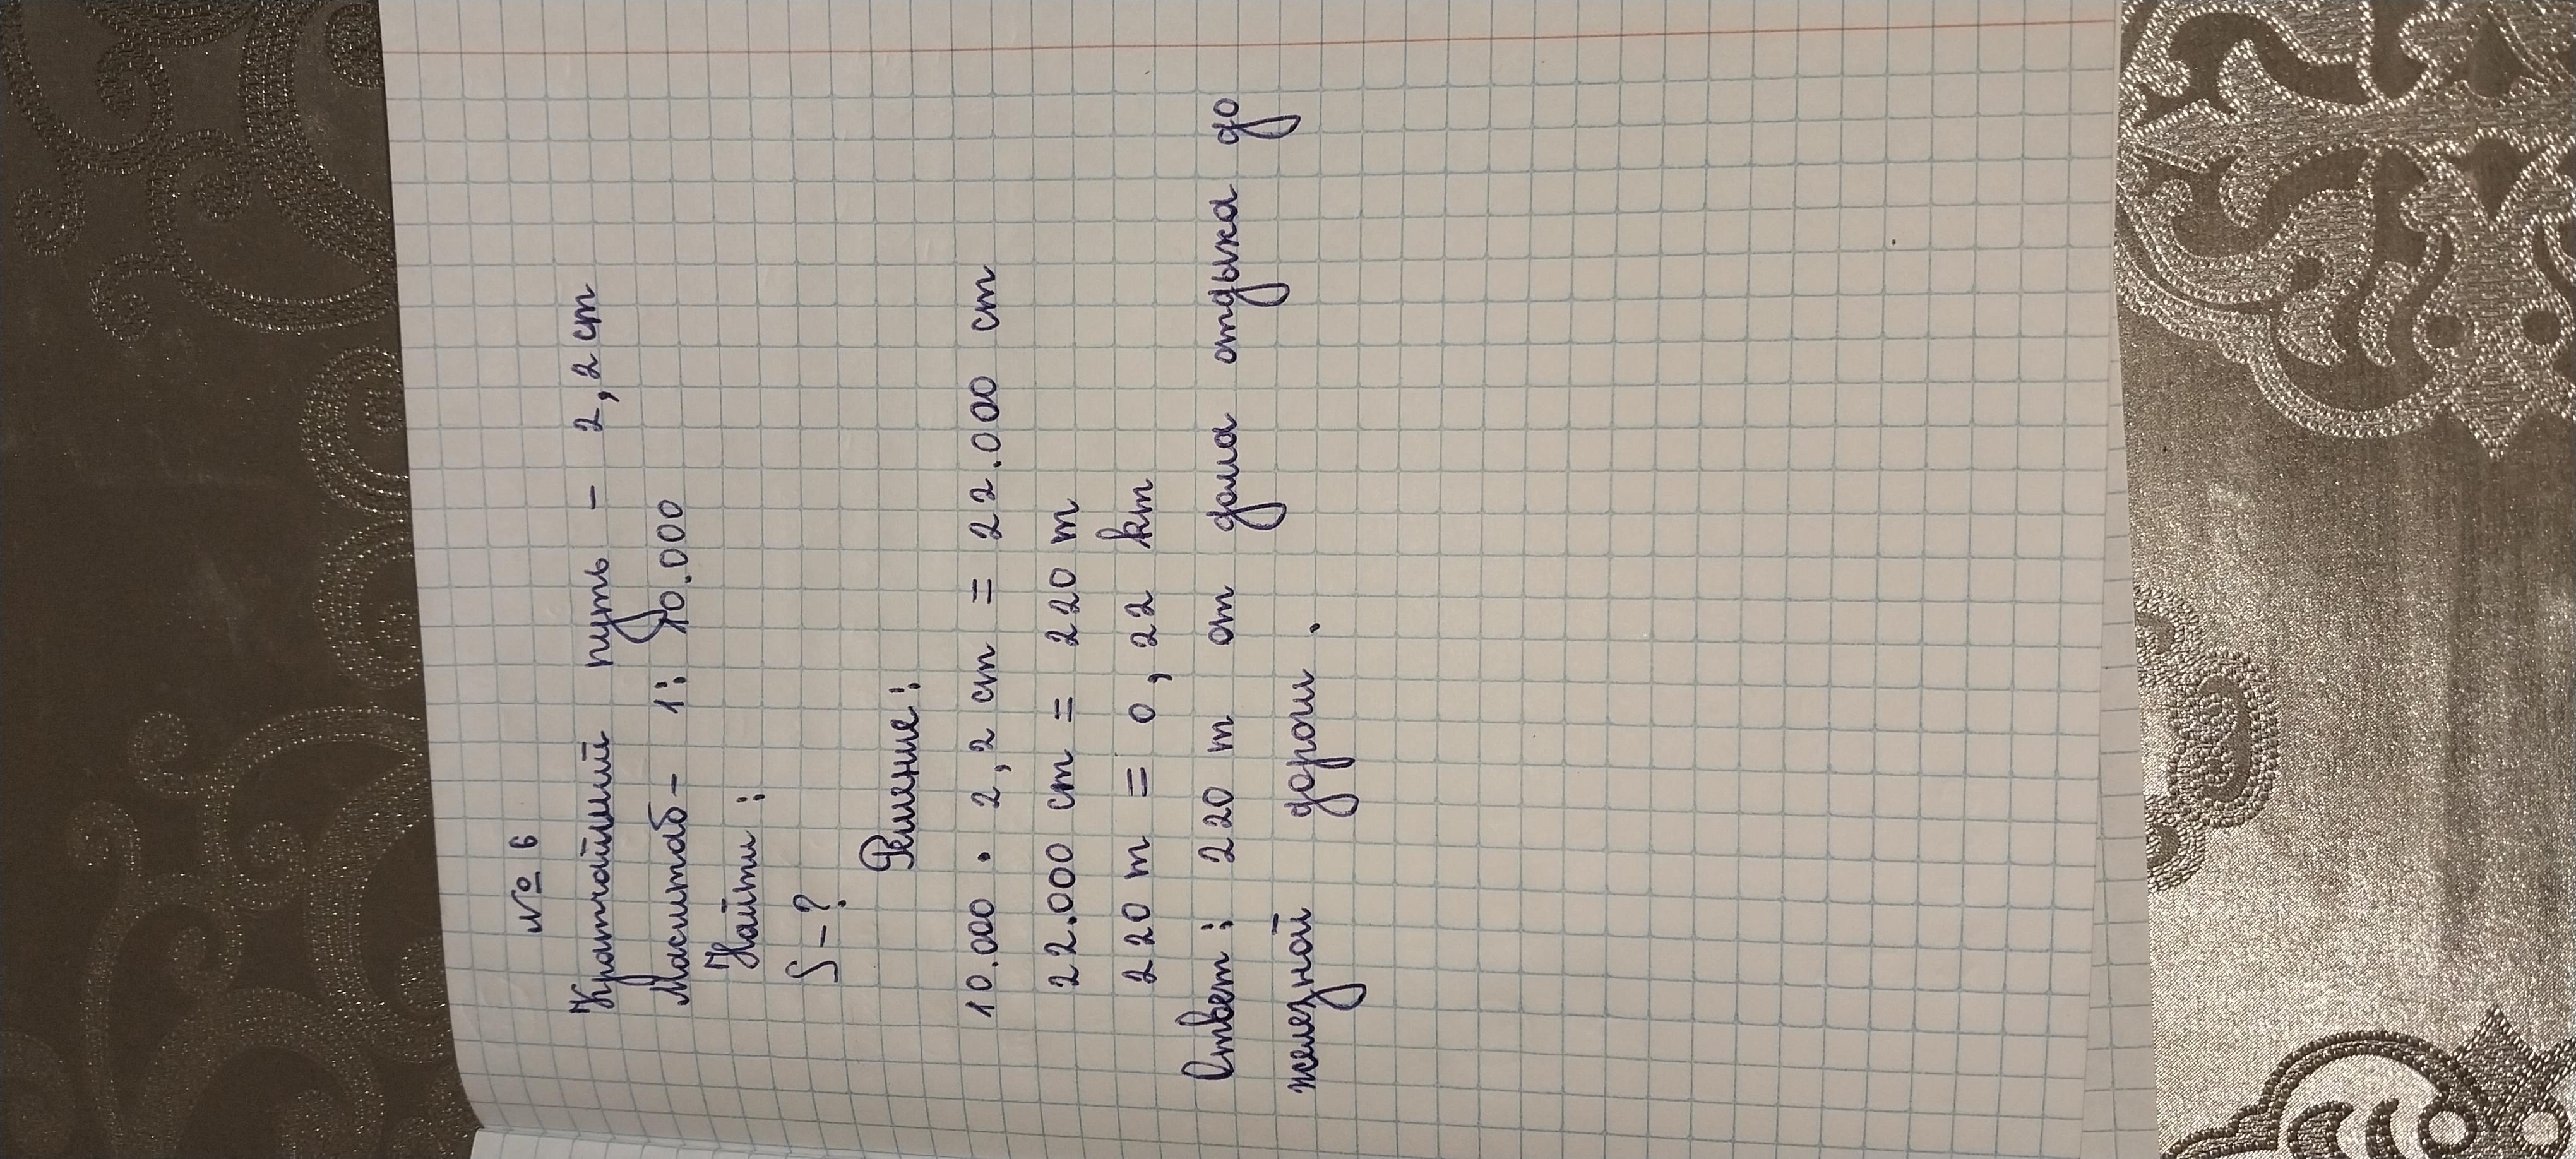 № 6
Кратчайший путь - 2,2 cm
Масштаб - 1: 10.000
Найти:
S - ?
Решение:
10.000 • 2,2 cm = 22.000 cm
22.000 cm = 220 m
220 m = 0,22 km
Ответ: 220 m от дома отдыха до
железной дороги.